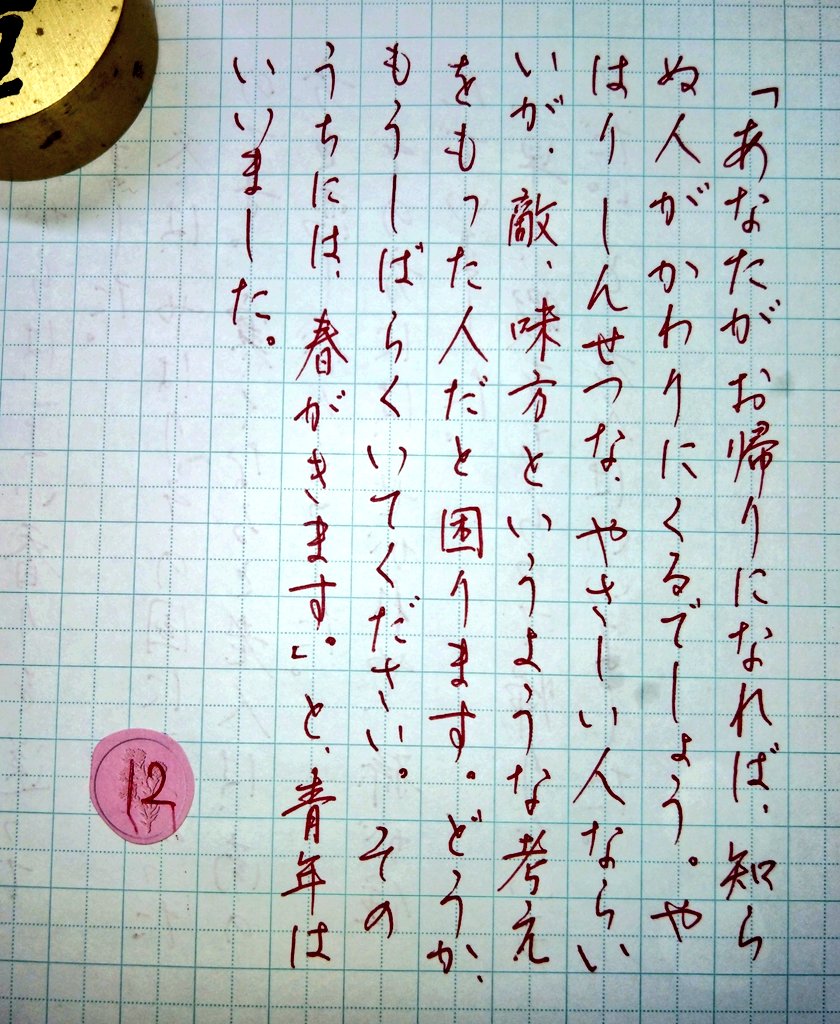 「あなたがお帰りになれば、知ら
ぬ人がかわりにくるでしょう。や
はりしんせつな、やさしい人ならい
いが、敵、味方というような考え
をもった人だと困ります。どうか、
もうしばらくいてください。その
うちには、春がきます。」と、青年は
いいました。
12